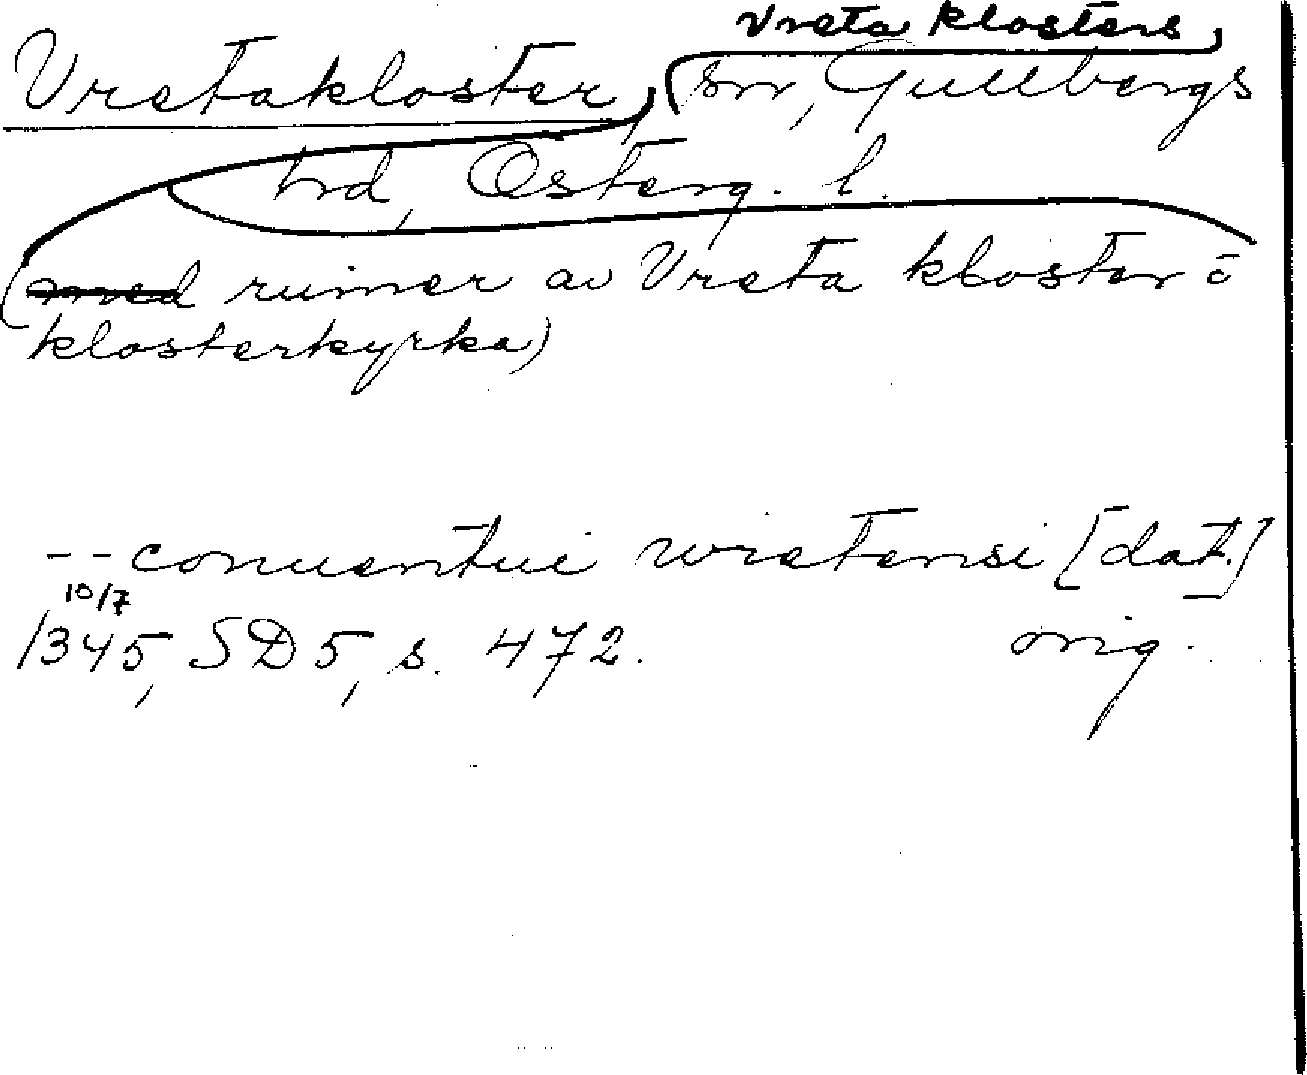 Vreta klosters
Vretakloster, sn, Gullbergs
hd, Österg. l.
(med ruiner av Vreta kloster o
klosterkyrka)
-- conuentui wretensi [dat.]
10/7
1345, SD 5, s. 472. orig.